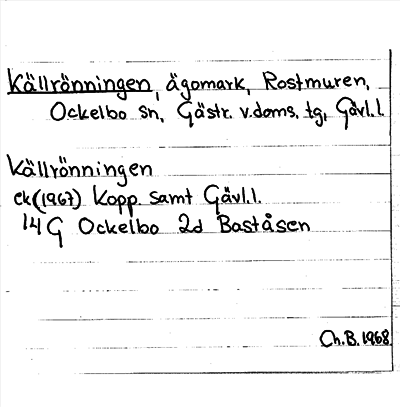 Källrönningen, ägomark, Rostmuren,
Ockelbo sn, Gästr. v.doms. tg, Gävl.l.
Källrönningen
ek(1967) Kopp. samt Gävl.l.
14 G Ockelbo 2d Baståsen
Ch.B. 1968